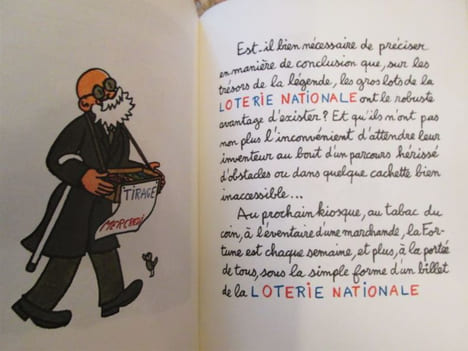 TIRAGE
MERCREDI
Est-il bien nécessaire de préciser
en manière de conclusion que, sur les
trésors de la légende, les gros lots de la
LOTERIE NATIONALE ont le robuste
avantage d'exister? Et qu'ils n'ont pas
non plus l'inconvénient d'attendre leur
inventeur au bout d'un parcours hérissé
d'obstacles ou dans quelque cachette bien
inaccessible...
Au prochain kiosque, au tabac du
coin, à l'éventaire d'une marchande, la For-
tune est chaque semaine, et plus, à la portée
de tous, sous la simple forme d'un billet
de la LOTERIE NATIONALE